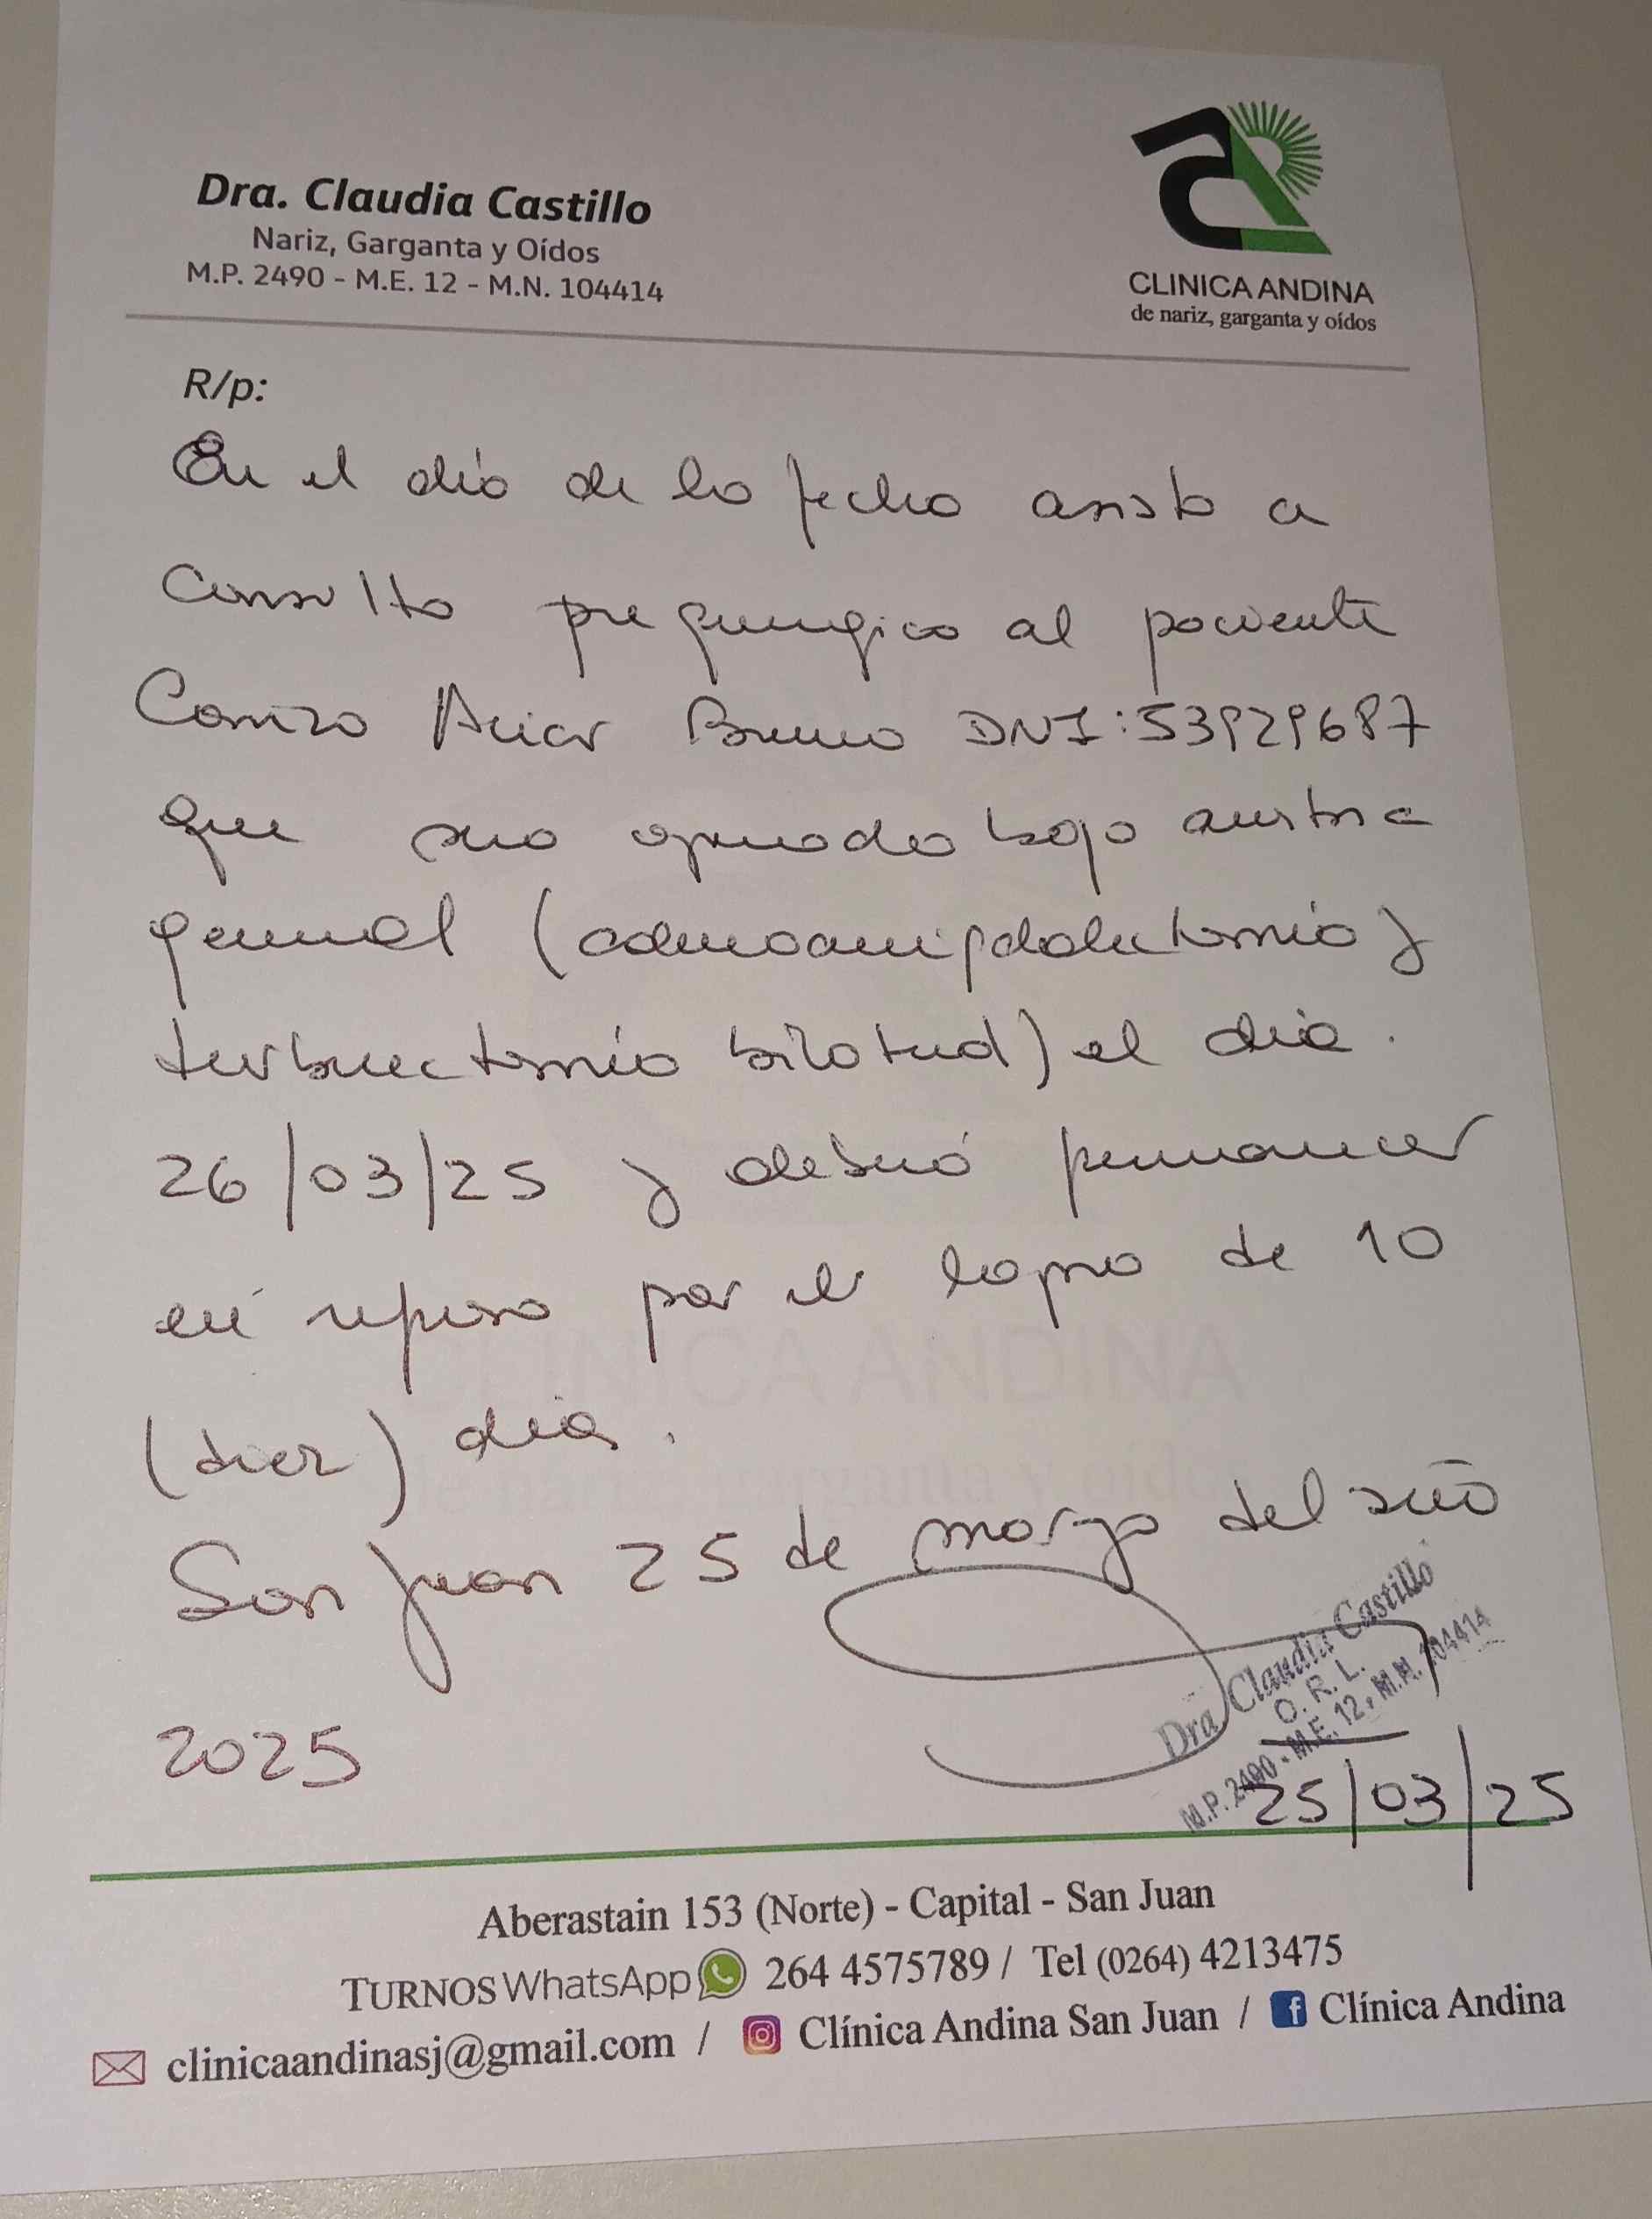 Dra. Claudia Castillo
Nariz, Garganta y Oídos
M.P. 2490 - M.E. 12 - M.N. 104414
CLINICA ANDINA
de nariz, garganta y oídos
R/p:
En el día de la fecha asisto a
consulta prequirúrgica al paciente
Bruno DNI: 53929687
que será operado bajo anestesia
general (adenoamigdalectomía y
turbinectomía bilateral) el día
26/03/25 y deberá permanecer
en reposo por el lapso de 10
(diez) días.
San Juan 25 de marzo del año
2025
Dra Claudia Castillo
O. R. L.
M.P. 2490 - M.E. 12, M.N. 104414
25/03/25
CLINICA ANDINA
de nariz, garganta y oídos
Aberastain 153 (Norte) - Capital - San Juan
TURNOS WhatsApp 264 4575789 / Tel (0264) 4213475
clinicaandinasj@gmail.com / Clínica Andina San Juan / Clínica Andina